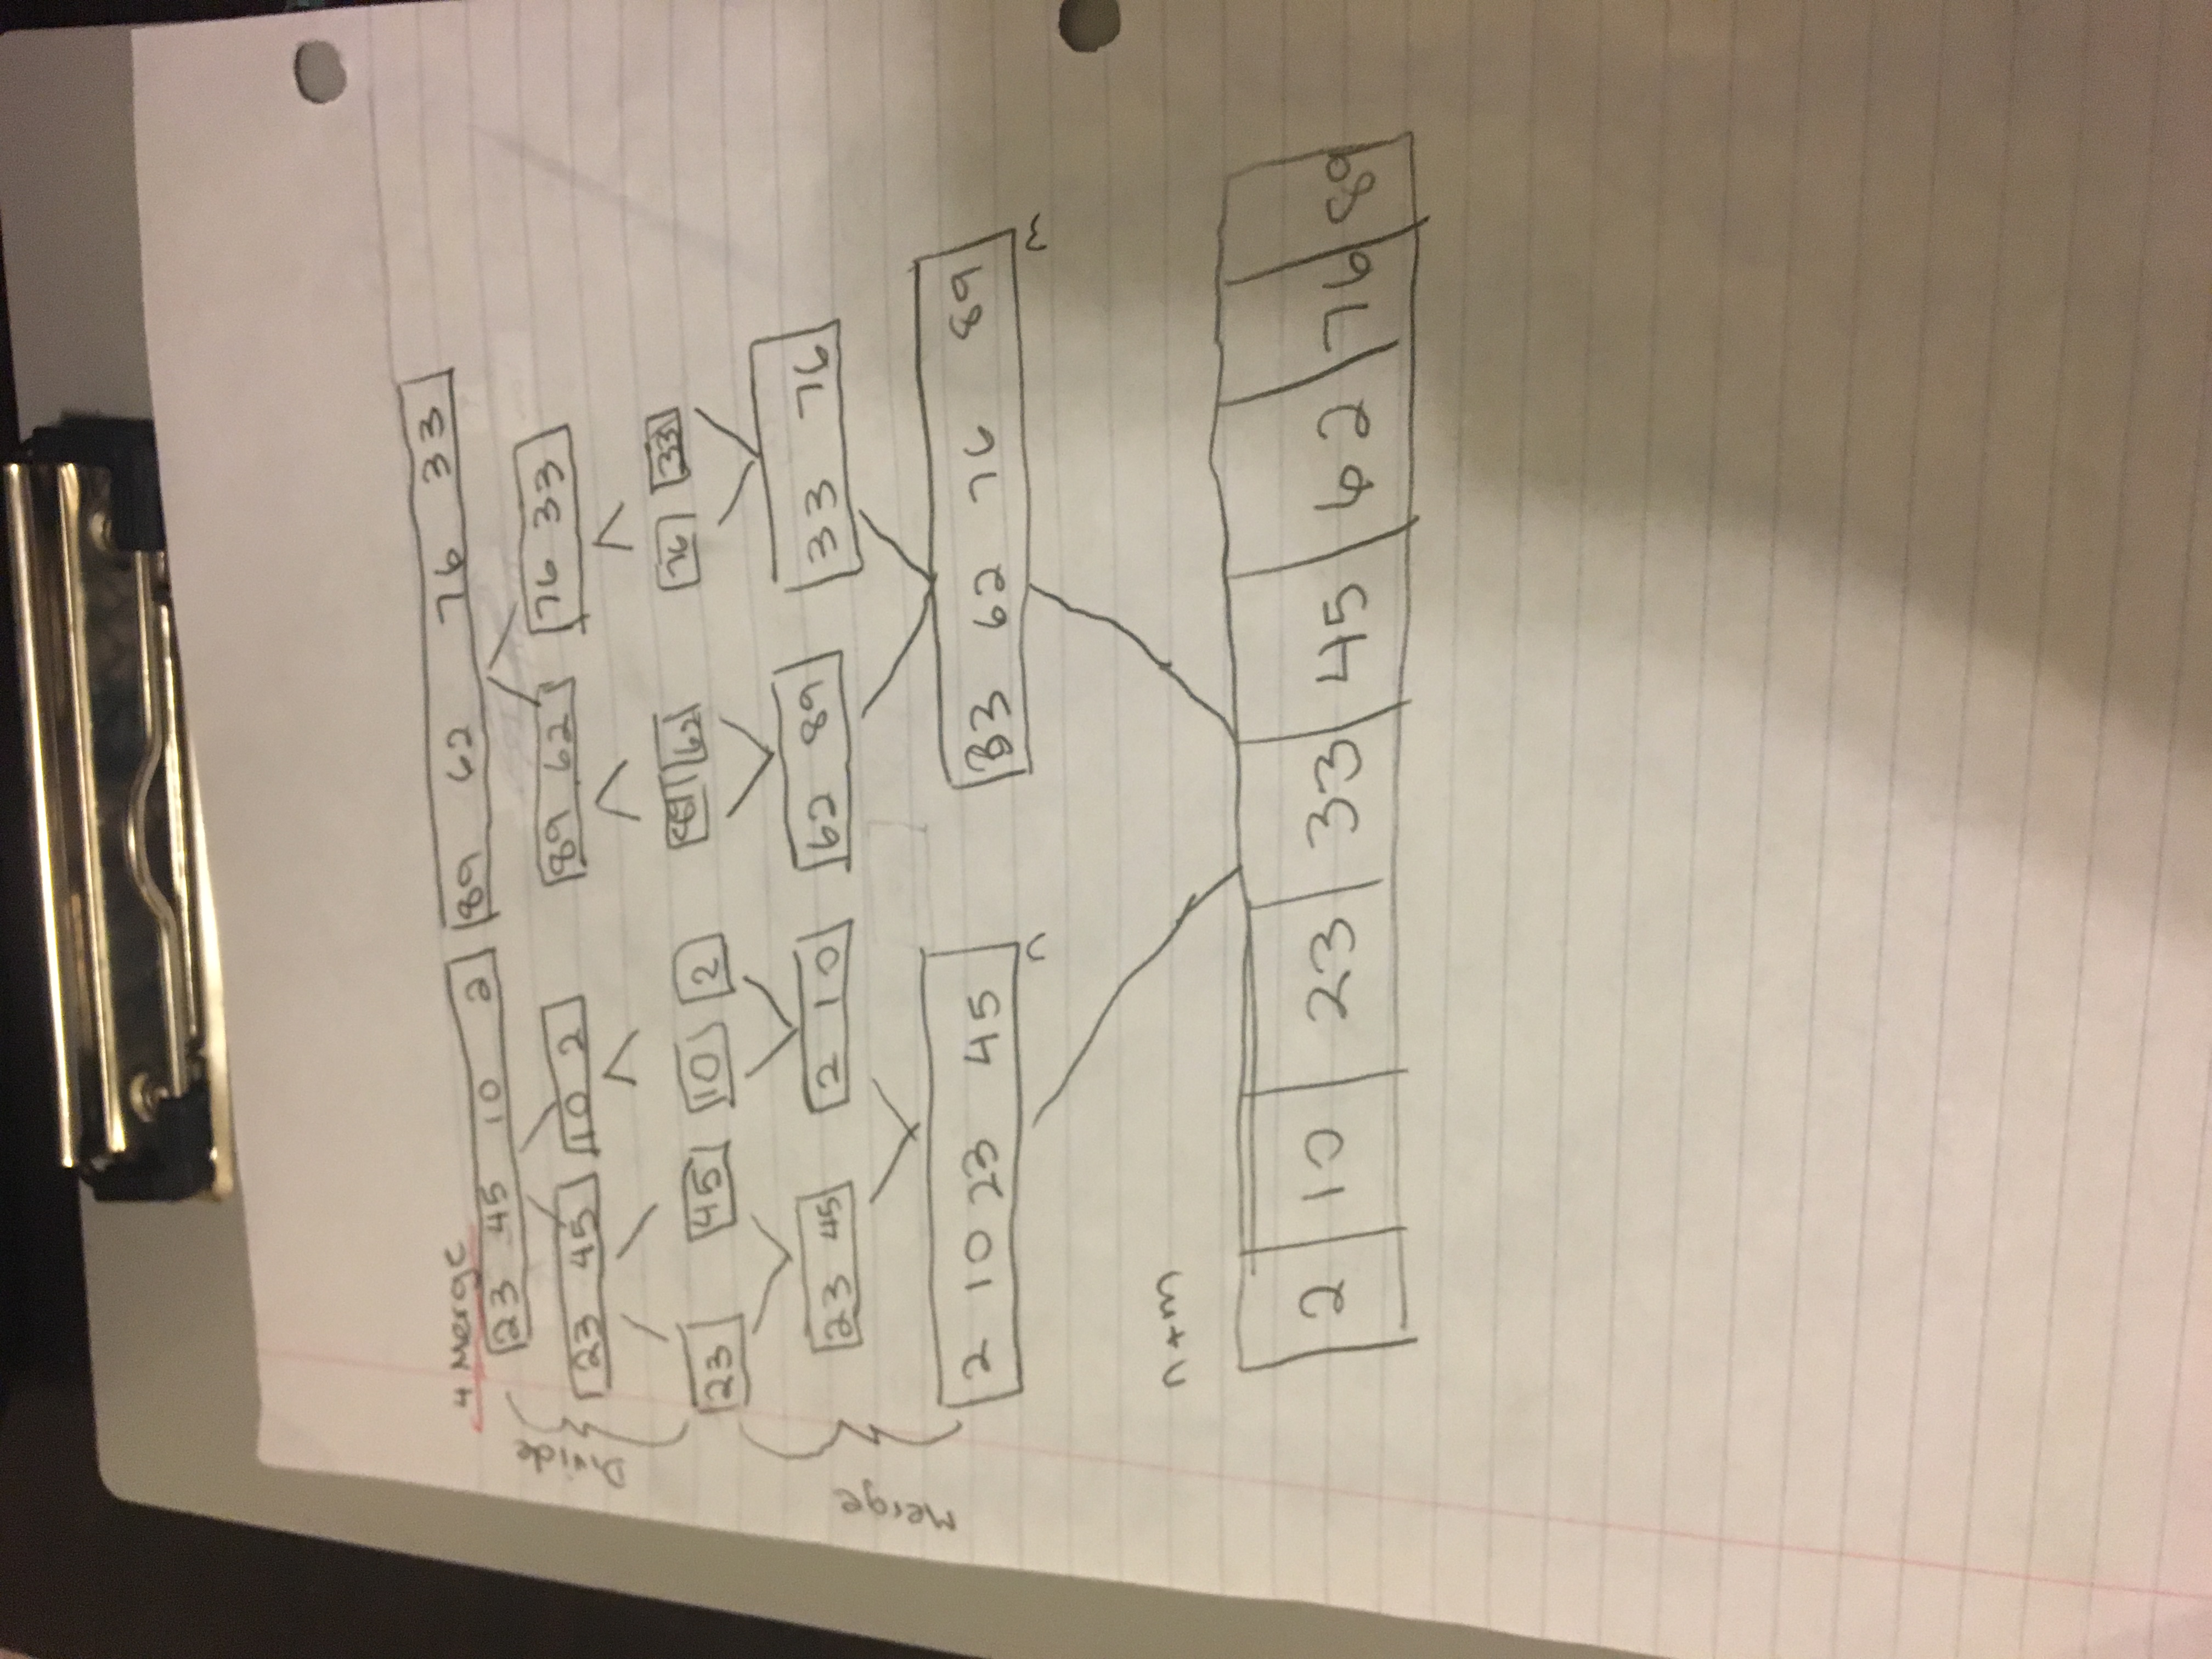 4 Merge
23 45 10 2 89 62 76 33
Divide
23 45 10 2 89 62 76 33
23 45 10 2 89 62 76 33
Merge
23 45 2 10 62 89 33 76
2 10 23 45 33 62 76 89
n m
n+m
2 10 23 33 45 62 76 89